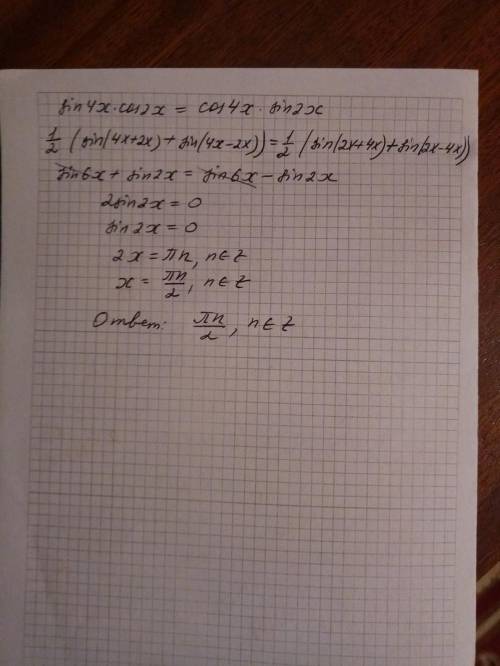 sin4x·cos2x = cos4x·sin2x
1/2 (sin(4x+2x)+sin(4x-2x))=1/2 (sin(2x+4x)+sin(2x-4x))
sin6x + sin2x = sin6x - sin2x
2sin2x = 0
sin2x = 0
2x = πn, n∈Z
x = πn/2, n∈Z
Ответ: πn/2, n∈Z